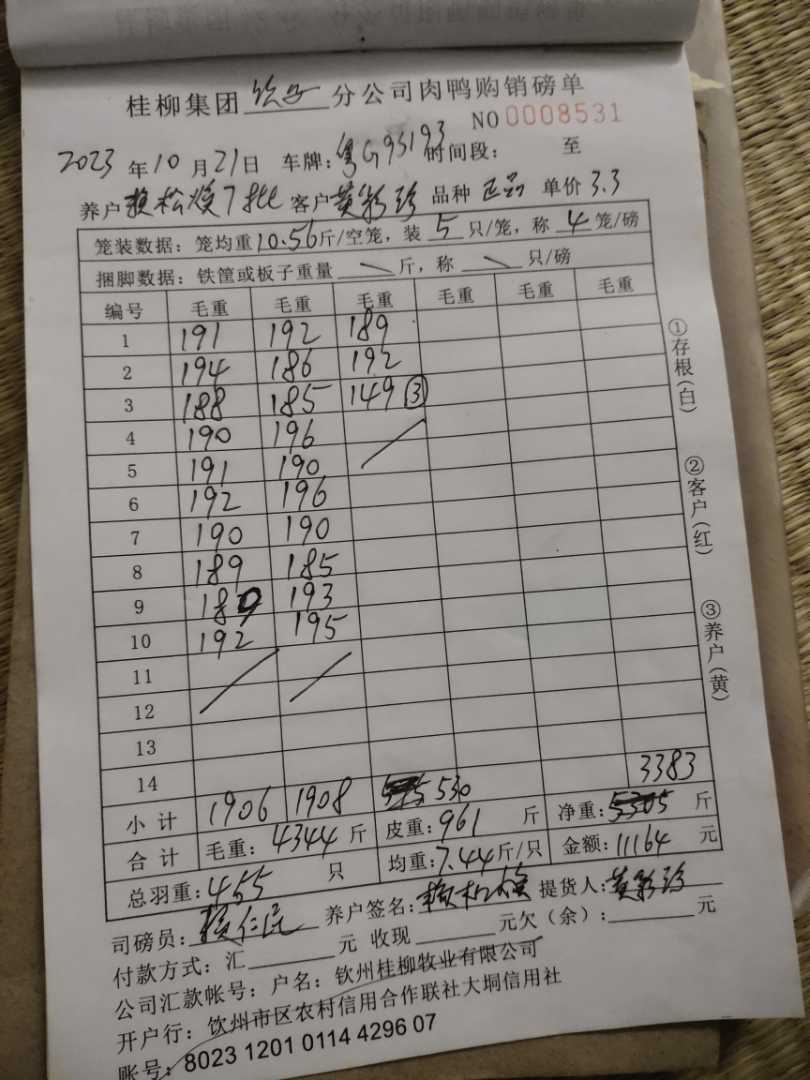 桂柳集团 钦州 分公司肉鸭购销磅单
NO 0008531
2023 年 10 月 21 日 车牌: 粤G95193 时间段: 至
养户 赖松焕7批 客户 黄彩珍 品种 正品 单价 3.3
笼装数据: 笼均重 10.56 斤/空笼, 装 5 只/笼, 称 4 笼/磅
捆脚数据: 铁筐或板子重量 斤, 称 只/磅
编号 毛重 毛重 毛重 毛重 毛重 毛重
1 191 192 189
2 194 186 192
3 188 185 149 ③
4 190 196
5 191 190
6 192 196
7 190 190
8 189 185
9 189 193
10 192 195
11
12
13
14 3383
小计 1906 1908 530
合计 毛重: 4344 斤 皮重: 961 斤 净重: 斤
总羽重: 455 只 均重: 7.44 斤/只 金额: 11164 元
司磅员: 养户签名: 提货人: 黄彩珍
付款方式: 汇 元 收现 元欠(余): 元
公司汇款帐号: 户名: 钦州桂柳牧业有限公司
开户行: 钦州市区农村信用合作联社大垌信用社
账号: 8023 1201 0114 4296 07
①存根(白)
②客户(红)
③养户(黄)